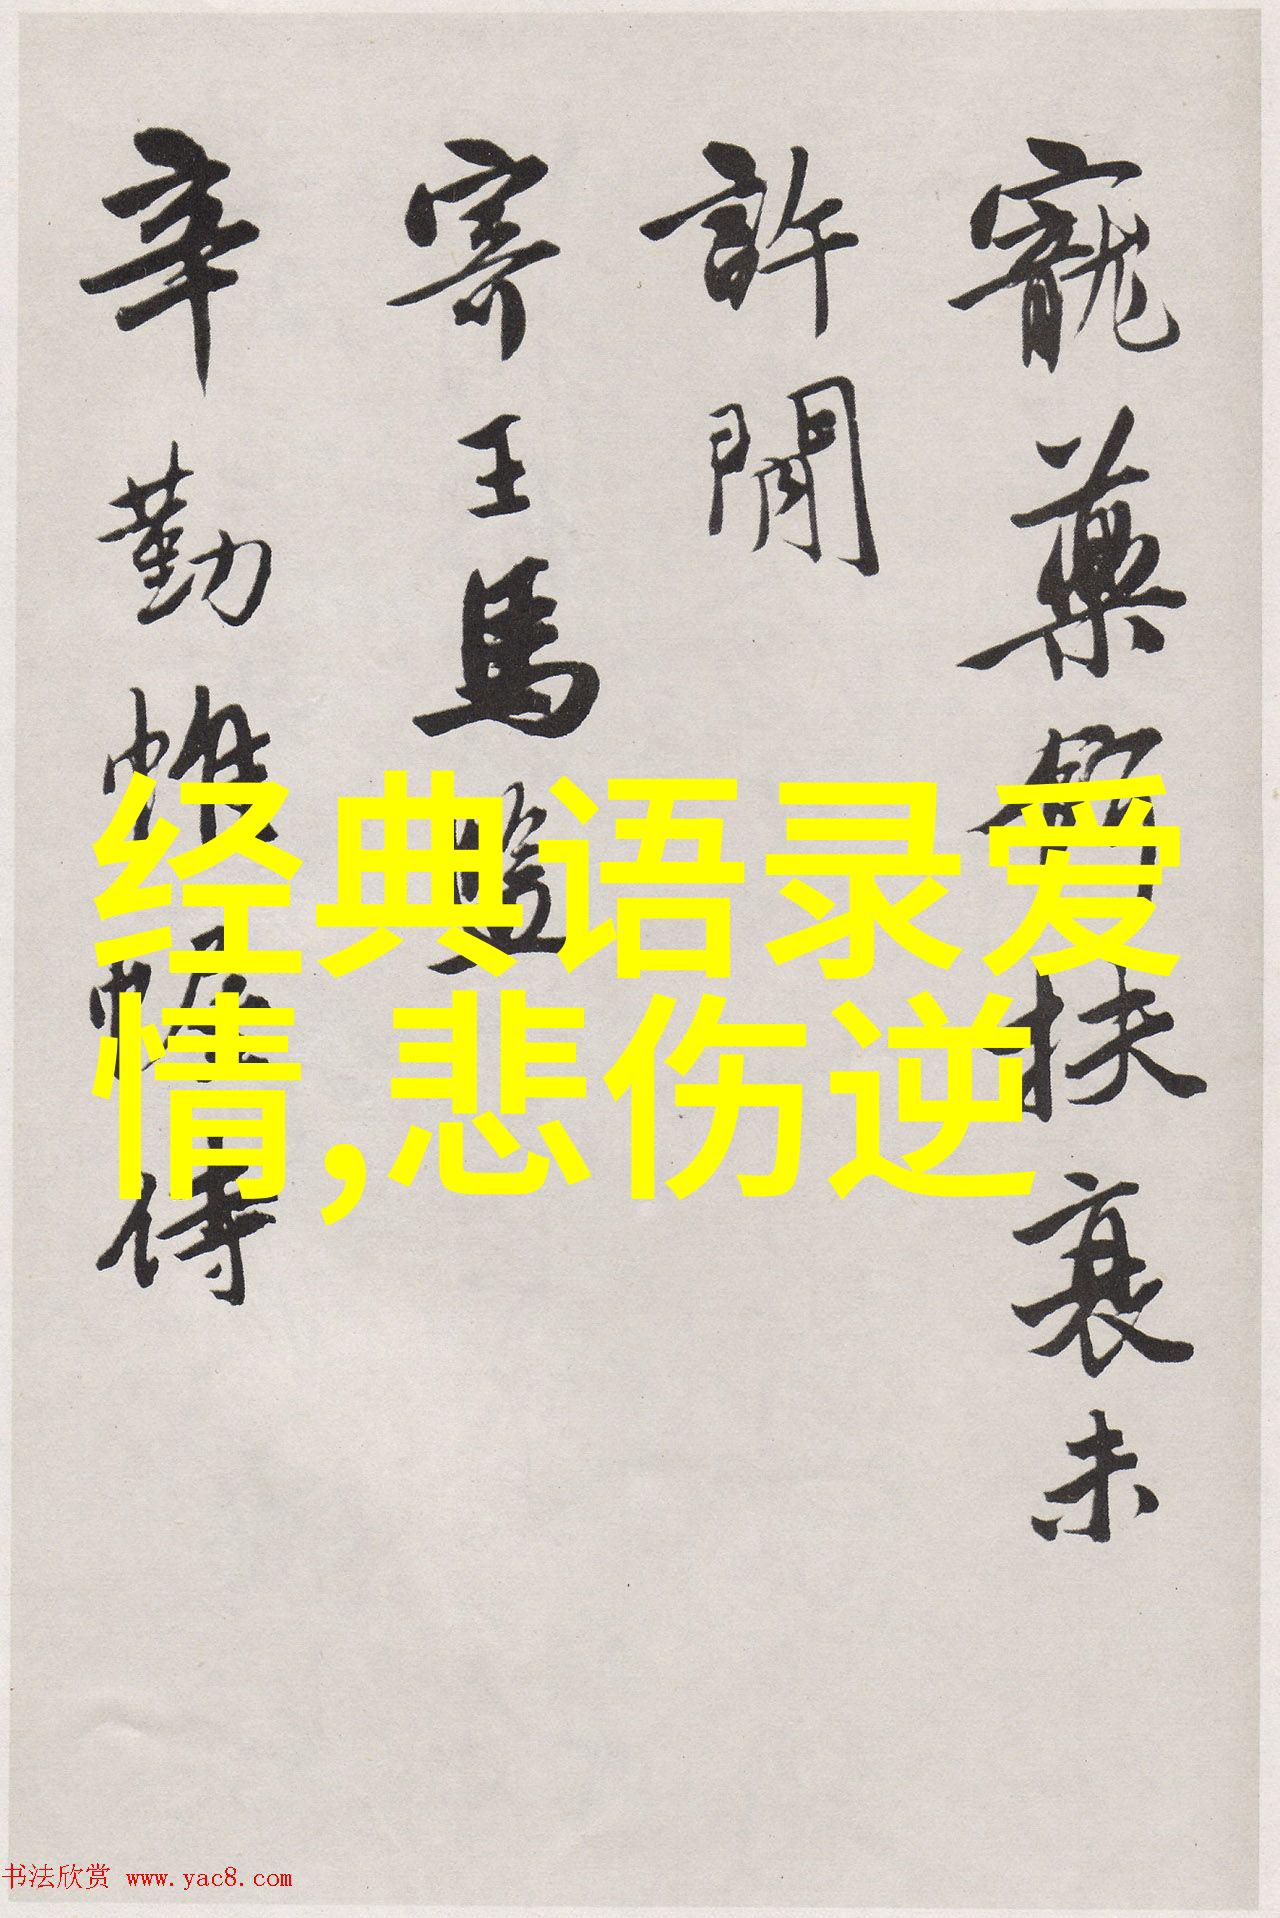 寵藥餌扶衰未
許閒
寄王馬
辛勤帷幄侍
经典语录爱
情,悲伤逆
书法欣赏 www.yac8.com